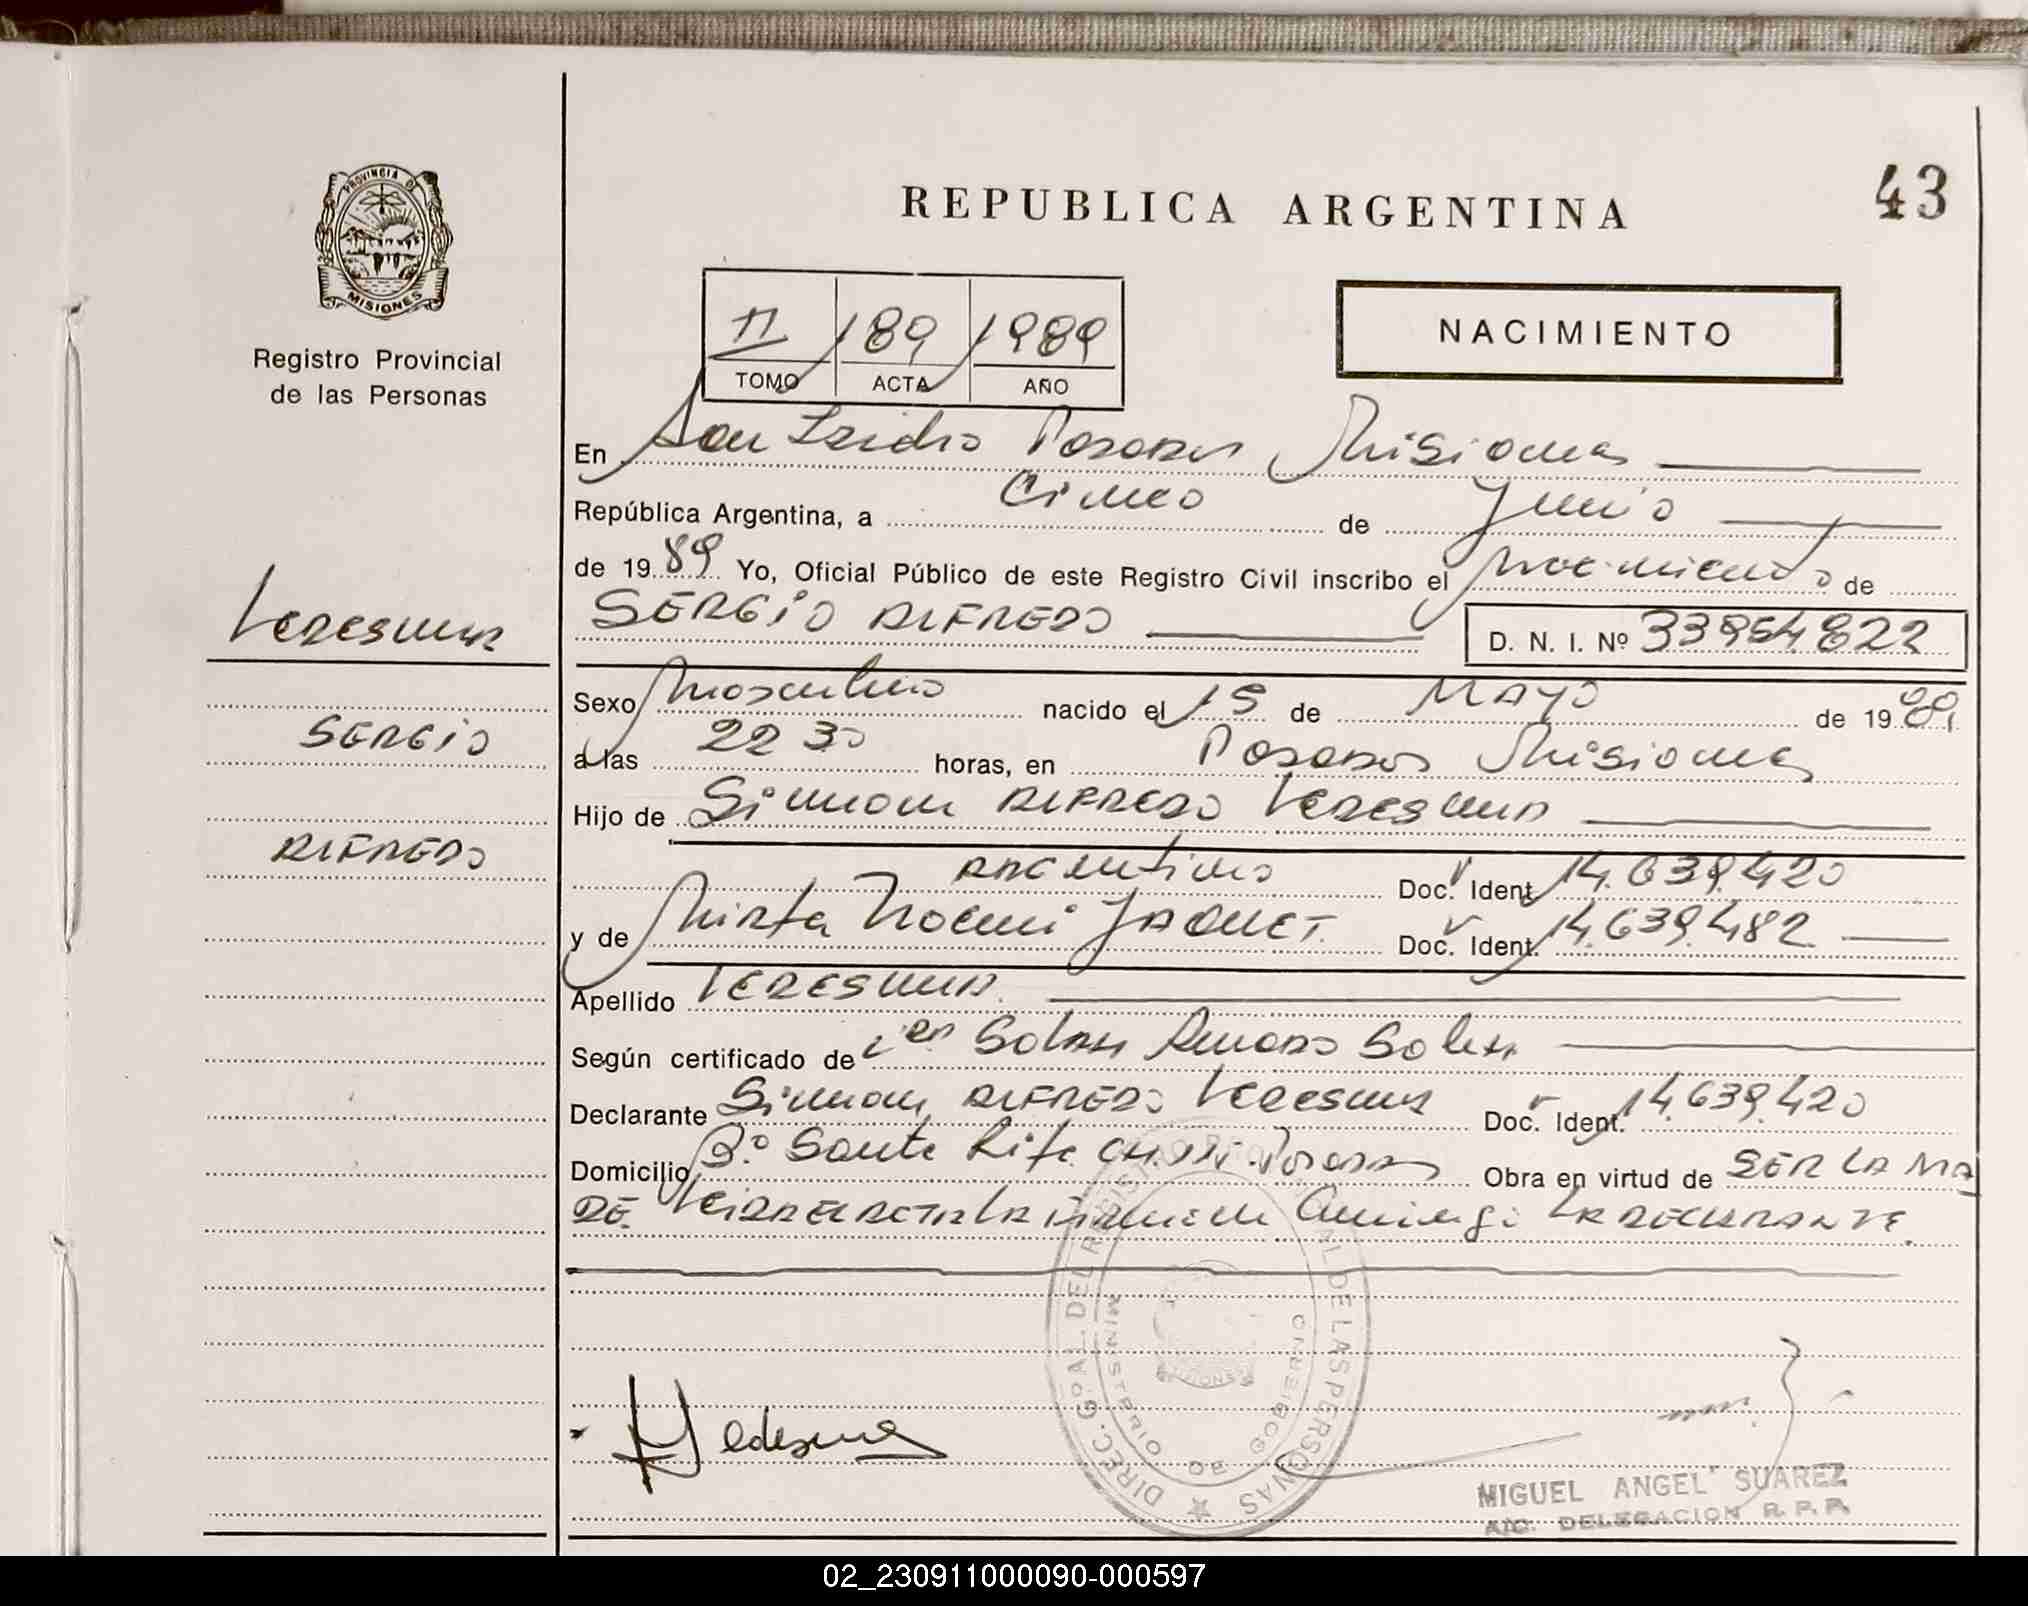 REPUBLICA ARGENTINA
43
PROVINCIA DE
MISIONES
Registro Provincial
de las Personas
II 189 1989
TOMO ACTA AÑO
NACIMIENTO
En San Isidro Posadas Misiones
República Argentina, a Cinco de Junio
de 1989 Yo, Oficial Público de este Registro Civil inscribo el nacimiento de
SERGIO ALFREDO D. N. I. Nº 33954.822
Ledesma
SERGIO
ALFREDO
Sexo Masculino nacido el 15 de MAYO de 1989
a las 22 30 horas, en Posadas Misiones
Hijo de Simon ALFREDO LEDESMA
ARGENtino Doc. Ident 14.639.420
y de Mirta Noemi JAQUET. Doc. Ident. 14.639.482
Apellido LEDESMA
Según certificado de
Declarante ALFREDO Ledesma Doc. Ident. 14.639.420
Domicilio Bº Santa Rita Posadas Obra en virtud de SER
LA DECLARANTE.
DIREC. GRAL. DEL REGISTRO PROVINCIAL DE LAS PERSONAS
MINISTERIO DE GOBIERNO
MISIONES
Ledesma
MIGUEL ANGEL SUAREZ
A/C. DELEGACION R. P. P.
02_230911000090-000597